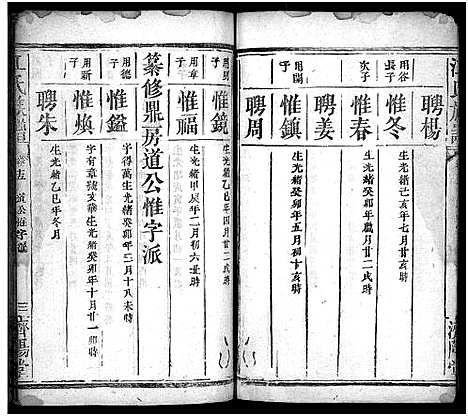 聘楊
用谷長子
惟冬
生光緒己亥年七月廿亥時
次子
惟春
生光緒癸卯年八月廿二戌時
聘姜
用開子
惟鎮
生光緒癸卯年五月初十亥時
聘周
惟鏡
生光緒乙巳年四月廿二戌時
用章子
惟福
生光緒甲辰年二月初六丑時
纂修鼎房道公惟字派
用德子
惟鎰
字得萬生光緒癸卯年二月十八未時
用新子
惟煥
字有章號文華生光緒癸卯年十月廿一卯時
聘朱
生光緒乙巳年冬月
濟陽堂